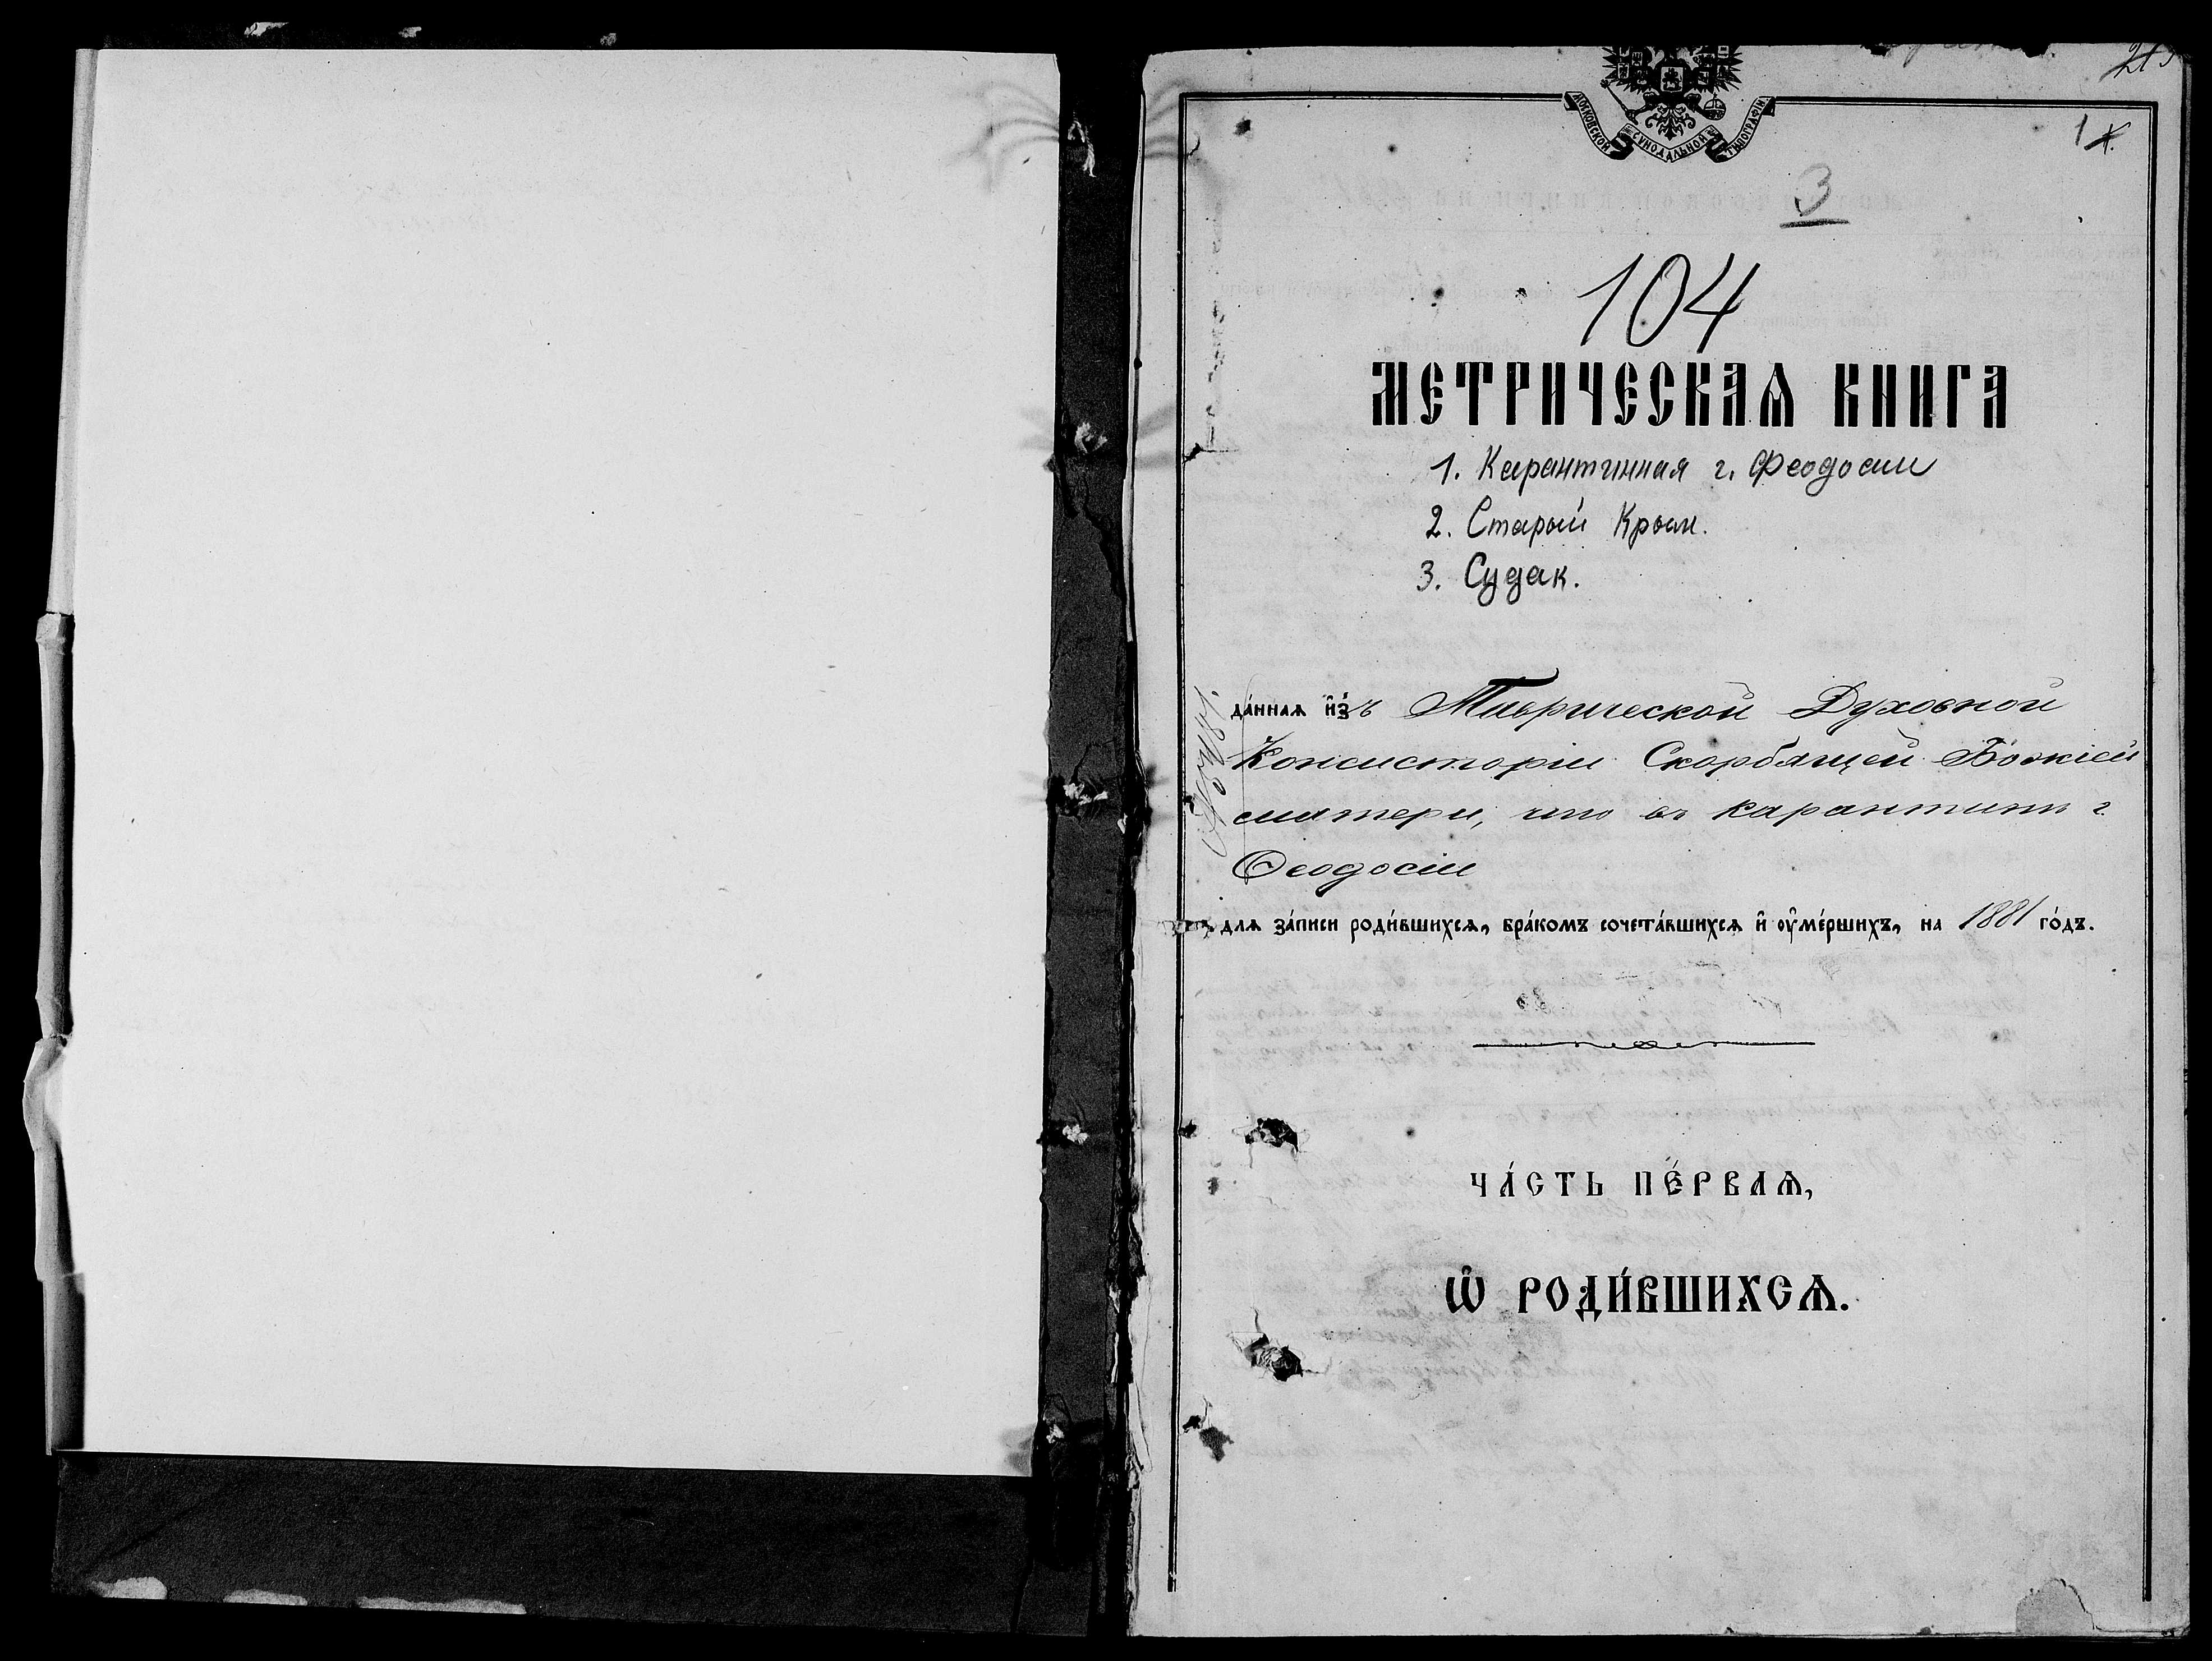 МОСКОВСКОЙ СѴНОДАЛЬНОЙ ТИПОГРАФІИ
1
3
104
МЕТРИЧЕСКАѦ КНИГА
1. Карантинная г. Феодосии
2. Старый Крым.
3. Судак.
да́ннаѧ и҆́зъ Таврической Духовной
Консисторіи Скорбящей Божіей
матери, что въ карантинѣ г.
Ѳеодосіи
для за́писи роди́вшихсѧ, бра́комъ сочета́вшихсѧ и҆ ᲂу҆ме́ршихъ, на 1881 го́дъ.
ЧА́СТЬ ПЕ́РВАѦ,
Ѡ҆ РОДИ́ВШИХСѦ.